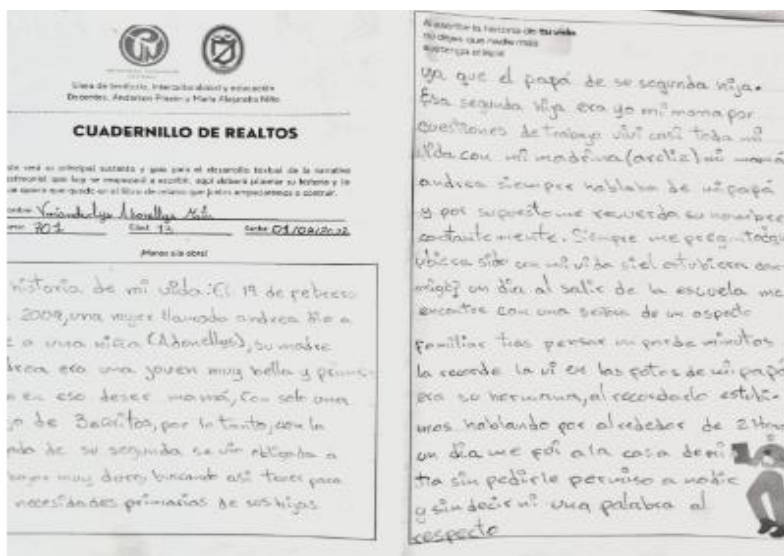 Línea de territorio, interculturalidad y educación
Docentes: Anderson Pinzón y María Alejandra Niño
CUADERNILLO DE REALTOS
será su principal sustento y guía para el desarrollo textual de la narrativa
testimonial que hoy se empezará a escribir, aquí deberá planear su historia y lo
que quiera que quede en el libro de relatos que juntos empezaremos a construir.
701 Edad: 13 Fecha: 01/04/2022
¡Manos a la obra!
historia de mi vida: El 19 de febrero
2009, una mujer llamada andrea dio a
a una niña (Adonellys), su madre
era una joven muy bella y
en eso deser mamá, con solo una
de 3 añitos, por lo tanto, con la
de su segunda se vio obligada a
muy duro, buscando así tener para
necesidades primarias de sus hijas
Al escribir la historia de tu vida
no dejes que nadie más
sostenga el lápiz
ya que el papá de su segunda hija.
Esa segunda hija era yo mi mama por
cuestiones de trabajo vivi casi toda mi
vida con mi madrina (arcliz) mi mamá
andrea siempre hablaba de mi papá
y por supuesto me recuerda su nombre
constantemente. Siempre me pregunto que
ubiera sido con mi vida si el estubiera con
migo; un dia al salir de la escuela me
encontre con una señora de un aspecto
familiar tras pensar un par de minutos
la recorde la vi en las fotos de mi papá
era su hermana, al recordarlo estubi-
mos hablando por alrededor de 2 Horas
un dia me foi a la casa de mi
tia sin pedirle permiso a nadie
y sin decir ni una palabra al
respecto